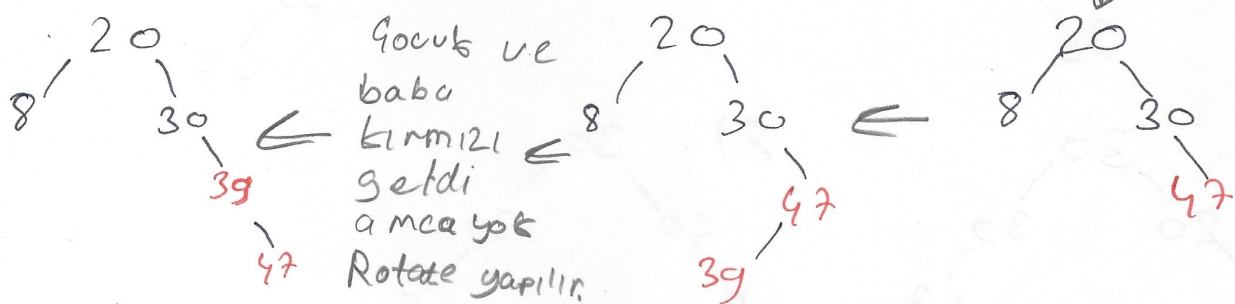 20
8
30
39
47
Çocuk ve
baba
kırmızı
geldi
amca yok
Rotate yapılır.
20
8
30
47
39
20
8
30
47